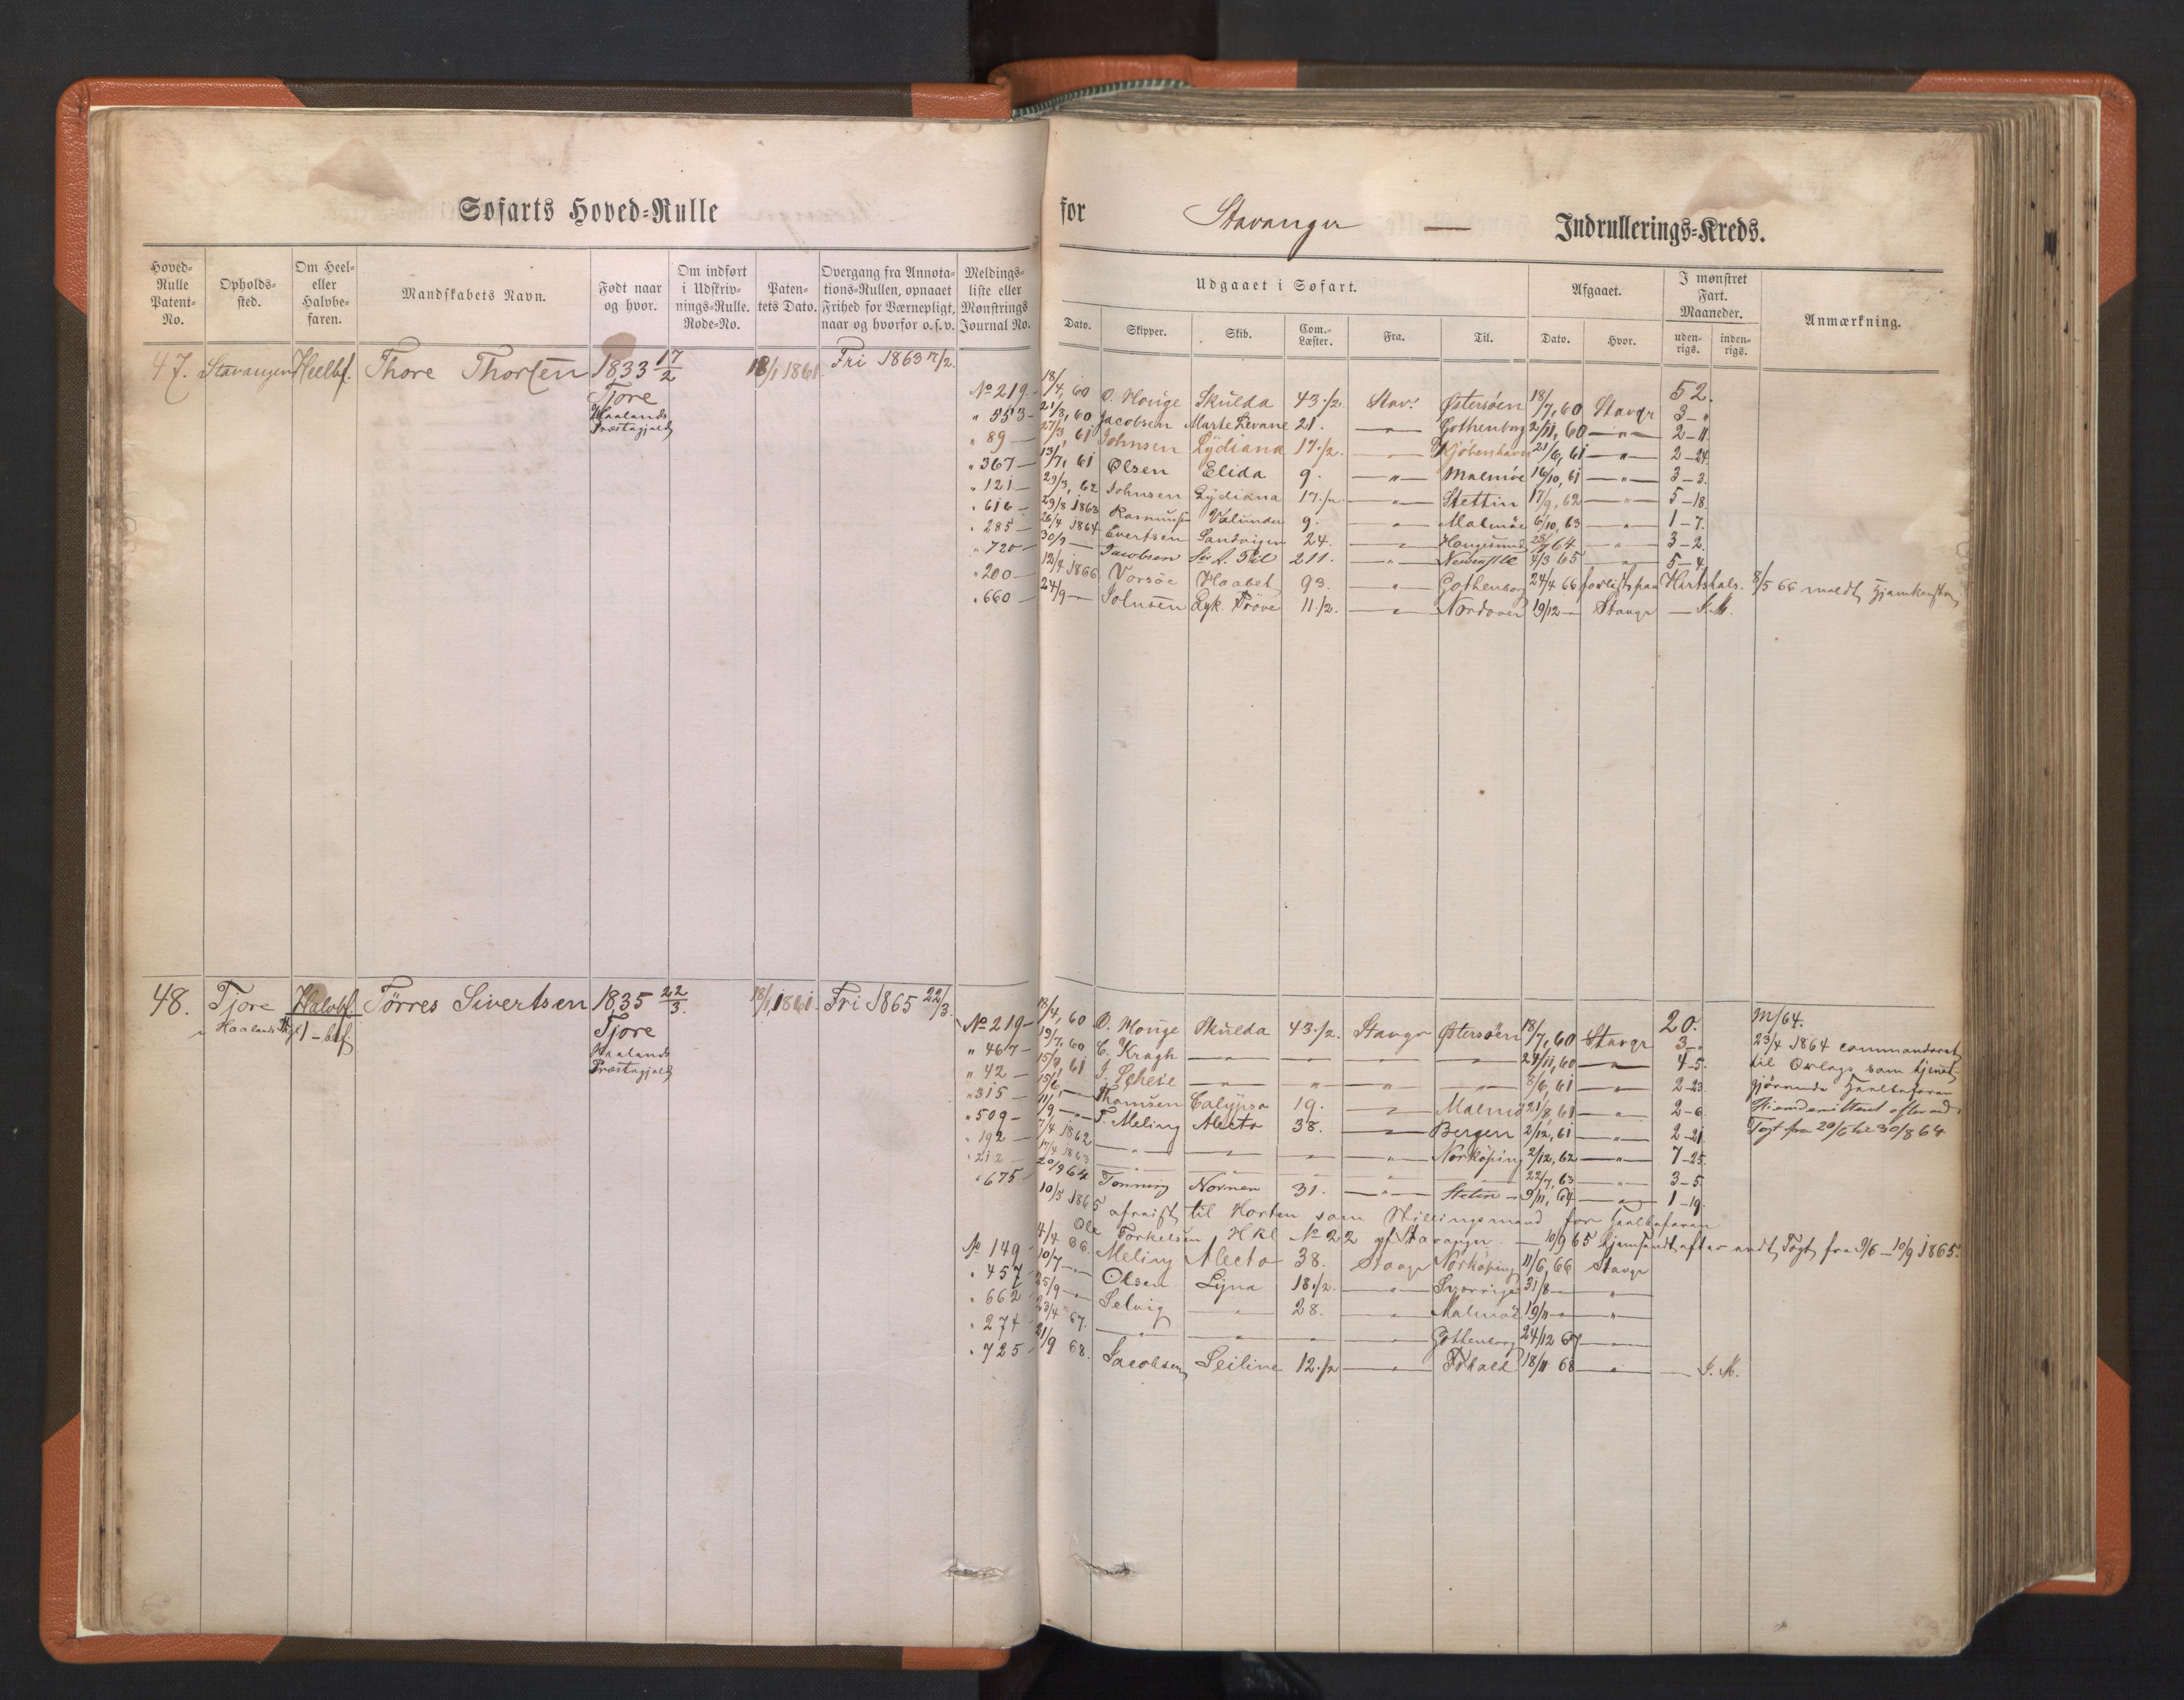 Søfarts Hoved=Rulle for Stavanger — Indrullerings=Kreds.
Hoved-Rulle Patent-No. Opholds-sted. Om Heel- eller Halvbe-faren. Mandskabets Navn. Født naar og hvor. Om indført i Udskriv-nings-Rulle. Rode-No. Paten-tets Dato. Overgang fra Annota-tions-Rullen, opnaaet Frihed for Værnepligt, naar og hvorfor o.s.v. Meldings-liste eller Mønstrings Journal No.
Udgaaet i Søfart. Afgaaet. I mønstret Fart. Maaneder. Anmærkning.
Dato. Skipper. Skib. Com.-Læster. Fra. Til. Dato. Hvor. uden-rigs. inden-rigs.
47. Stavanger Heelbf. Thore Thorsen 1833 17/2 18/1 1861. Fri 1863 17/2.
Tjore
Haalands
Præstegjeld
52.
No 219 - 18/4, 60 O. Houge Skulda 43 ./2 Stav: Østersøen 18/7, 60 Stavgr 3 - "
" 553 - 21/8, 60 Jacobsen Marte Levane 21. — " — Gothenborg 2/11, 60 — " — 2 - 11
" 89 — 27/3, 61 Johnsen Lydiana 17 ./2. — Kjøbenhavn 21/6, 61 — " — 2 - 24
" 367 — 13/7, 61 Olsen Elida 9. — " — Malmöe 16/10, 61 — " — 3 - 3.
" 121 — 29/3, 62 Johnsen Lydiana 17 ./2. — " — Stettin 17/9, 62 — " — 5 - 18
" 616 — 29/8 1863 Rasmussen 9. — " — Malmöe 6/10, 63 — " — 1 - 7.
" 285 — 26/4 1864 Evertsen Sandvigen 24. — " — Haugesund 64 — " — 3 - 2.
" 720 — 30/9 — Jacobsen 211. — " — Newcastle 4/3 65 — " — 5 - 4.
" 200 — 12/4 1866 Vorsöe Haabet 93. " Gothenborg 24/4 66 forlist paa Hirtshals. 8/5 66 meldt Hjemkomsten
" 660 — 24/9 — Johnsen Lyk. Pröve 11 ./2. — " — Nordover 19/12 — Stavgr — I.M.
48. Tjore Halvbf. Törres Sivertsen 1835 22/3. 18/1, 1861. Fri 1865 22/3.
i Haalands Pgl 1 - bef
Tjore
Haalands
Præstegjeld
20. M/64.
No 219 — 18/4, 60 O. Houge Skulda 43 ./2. Stavgr Østersøen 18/7, 60 Stavgr 3 - "
" 467 — 19/7, 60 C. Kragh — " — — 24/11, 60 — " — 4 - 5.
" 42 — 15/3, 61 J. — " — " " " 8/6, 61 " 2 - 23
" 315 — 15/6, — Thomsen Calypso 19. — " — Malmö 21/8 61 — " — 2 - 6
" 509 — 11/9, — " — T. Meling Alecto 38. — " — Bergen 2/12, 61 — " — 2 - 21
" 192 — 7/4 1862 — " — — — — " — Norköping 2/12, 62 — " — 7 - 25.
" 212 — 17/4 1863 — " — — — — " — 22/7, 63 — " — 3 - 5.
" 675 — 20/9 64 Tönning Nornen 31. — " — Stetin — 9/11, 64 — " — 1 - 19.
23/4 1864 commanderet
til Orlogs som tjenst-
gjörende Heelbefaren
Hiemdemitteret efter endt
Togt fra 20/6 til 30/8 64
10/5 1865 afreist til Horten som Stillingsmand for Heelbefaren
Ole Torkelsen Hkl No 22 af Stavanger. — 10/9 65 hjemsendt efter endt Togt fra 9/6 — 10/9 1865.
No 149 4/4 66. Meling Alecto 38. Stavgr Norköping 11/6, 66 Stavgr
" 457 10/7 — " — Olsen Lyna 18 ./2. — " — Sverrige 31/8 — "
" 662 25/9 — " — Selvig — " — 28. — " — Malmöe 19/11 — "
" 274 23/4 67. — " — — " — — — Gothenborg 24/12 67 —
" 725 21/9 68. Jacobsen Seiline 12 ./2 — " — Fr.hald 18/11 68 — " — — I.M.